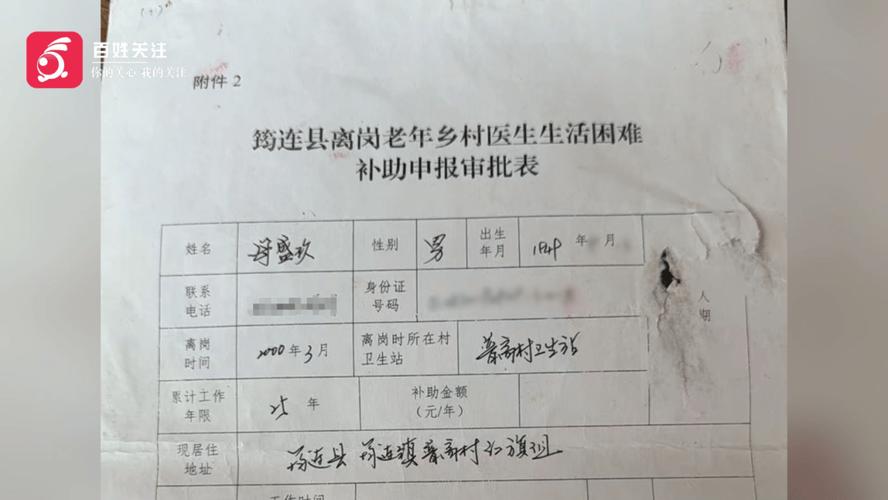 百姓关注
你的关心 我的关注
附件2
筠连县离岗老年乡村医生生活困难
补助申报审批表
姓名 盛玖 性别 男 出生年月 年 月
联系电话 身份证号码 人
离岗时间 2000年3月 离岗时所在村卫生站 村卫生站
累计工作年限 25年 补助金额(元/年)
现居住地址 筠连县筠连镇 村红旗组
工作时间